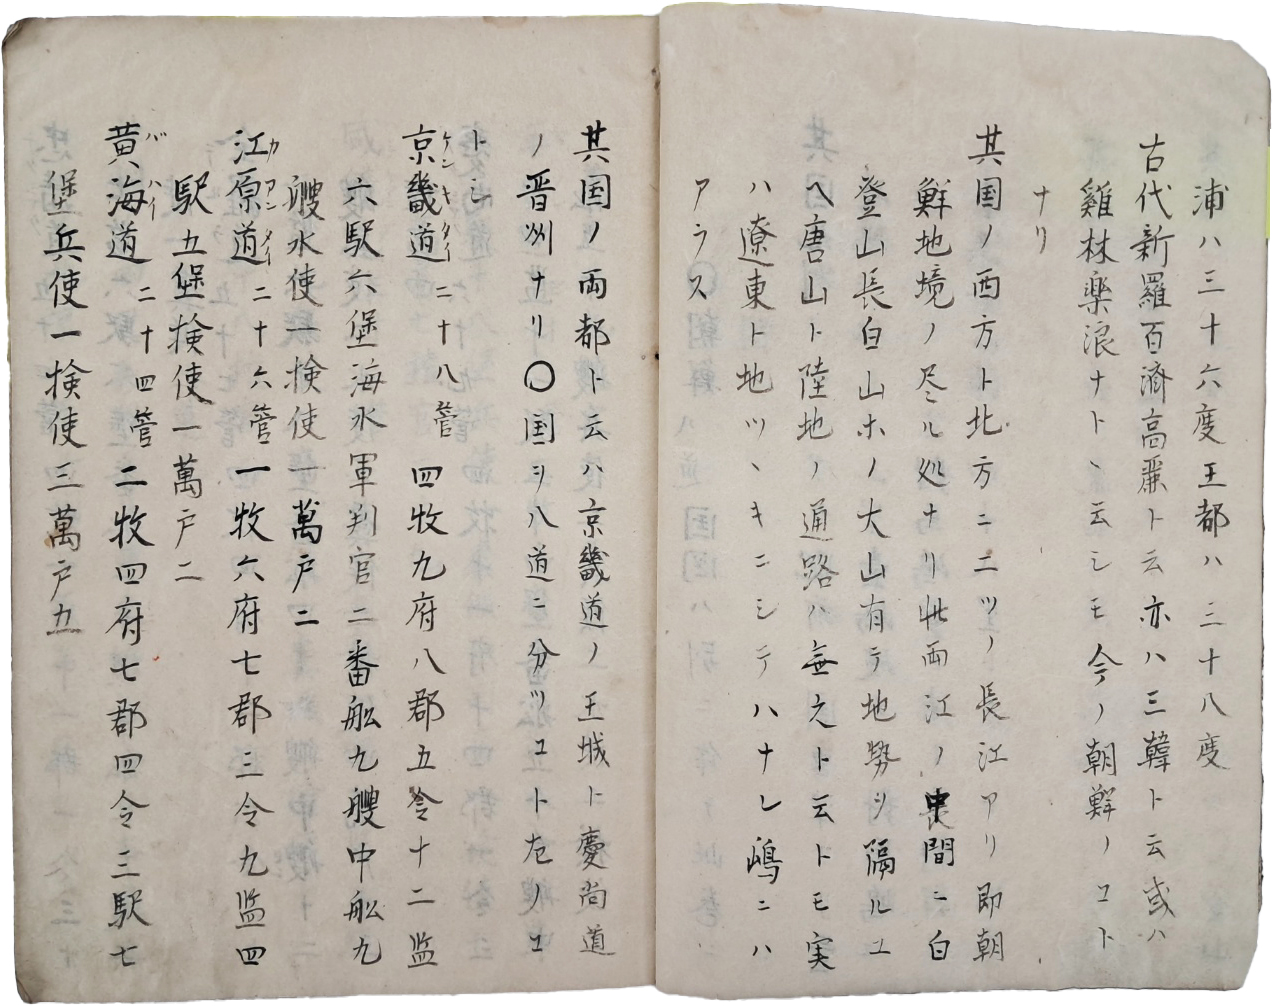 浦ハ三十六度王都ハ三十八度
古代新羅百済高麗ト云亦ハ三韓ト云或ハ
雞林楽浪ナトヽ云シモ今ノ朝鮮ノコト
ナリ
其国ノ西方ト北方ニ二ツノ長江アリ即朝
鮮地境ノ尽ル処ナリ此両江ノ中間ニ白
登山長白山ホノ大山有テ地勢ヲ隔ルユ
ヘ唐山ト陸地ノ通路ハ無之ト云トモ実
ハ遼東ト地ツヽキニシテハナレ嶋ニハ
アラス
其国ノ両都ト云ハ京畿道ノ王城ト慶尚道
ノ晋州ナリ〇国ヲ八道ニ分ツコト左ノコ
トシ
京畿道 二十八管 四牧九府八郡五令十二監
ケンキタイ
六駅六堡海水軍判官二番舩九艘中舩九
艘水使一検使一萬戸二
江原道 二十六管 一牧六府七郡三令九監四
カアンタイ
駅五堡検使一萬戸二
黄海道 二十四管 二牧四府七郡四令三駅七
バハイ
堡兵使一検使三萬戸五